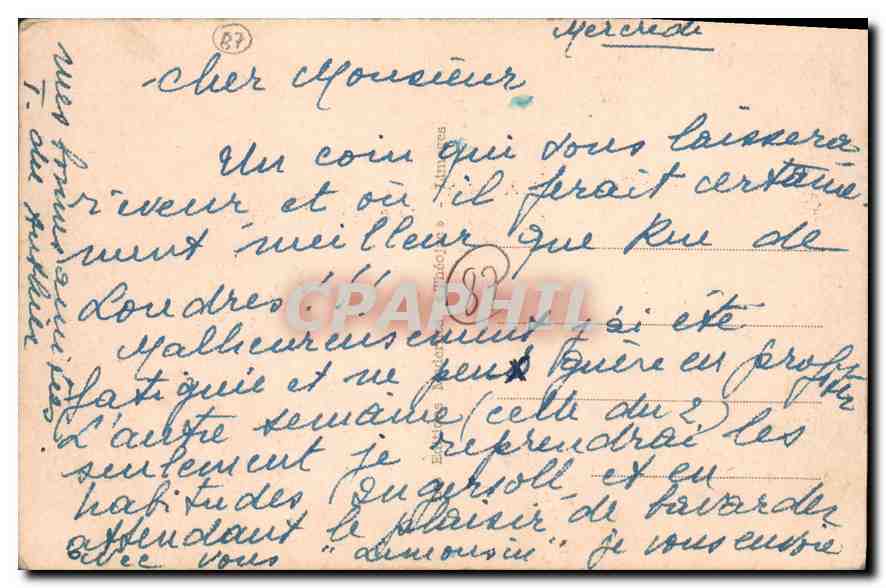 87
Mercredi
Cher Monsieur
Un coin qui vous laissera
rêveur et où il ferait certaine-
ment meilleur que Rue de
Londres!!!
Malheureusement j'ai été
fatiguée et ne peux guère en profiter
L'autre semaine (celle du 2)
seulement je reprendrai les
habitudes Ingersoll et en
attendant le plaisir de bavarder
avec vous "Limousin" je vous envoie
mes bonnes amitiés.
T. du Authier
87
CPAPHIL
Editions Théojac Limoges